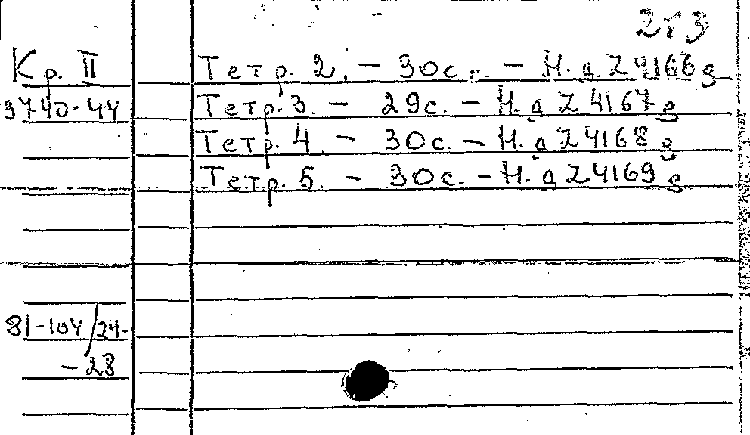 2 т 3
Кр. II
Тетр. 2. - 30с. - Н.д 24166 g
3740-44
Тетр. 3. - 29с. - Н.д 24167 g
Тетр. 4. - 30с. - Н.д 24168 g
Тетр. 5. - 30с. - Н.д 24169 g
81-104/24-
-28